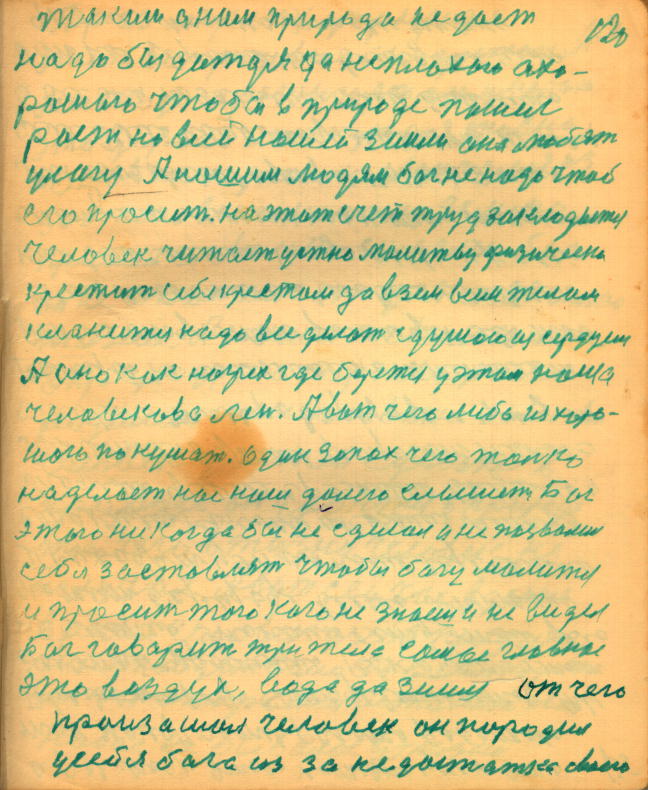 120
таким а ним природа не дает
надо бы дождя да неплохого ахо-
рошого чтобы в природе пошел
рост на всей нашей земли она любят
улагу А нашим людям бог не надо чтоб
его просит. на этот счет труд закладыется
человек читает устно молитву физическа
крестит себе крестом да взем всем телом
кланится надо все делат сдушою из сердцем
А оно как на грех где берется у этом наша
человекова лен. А вот чего либо из харо-
шого покушат. один запах чего только
наделает нас наш далего слышет Бог
этого никогда бы не сделал и не позволил
себя заставлят чтобы богу молится
и просит того кого не знаеш и не видел
Бог говарит три тела самое главное
это воздух, вода да земля от чего
произашол человек он породил
усебя бога из за недостатка своего